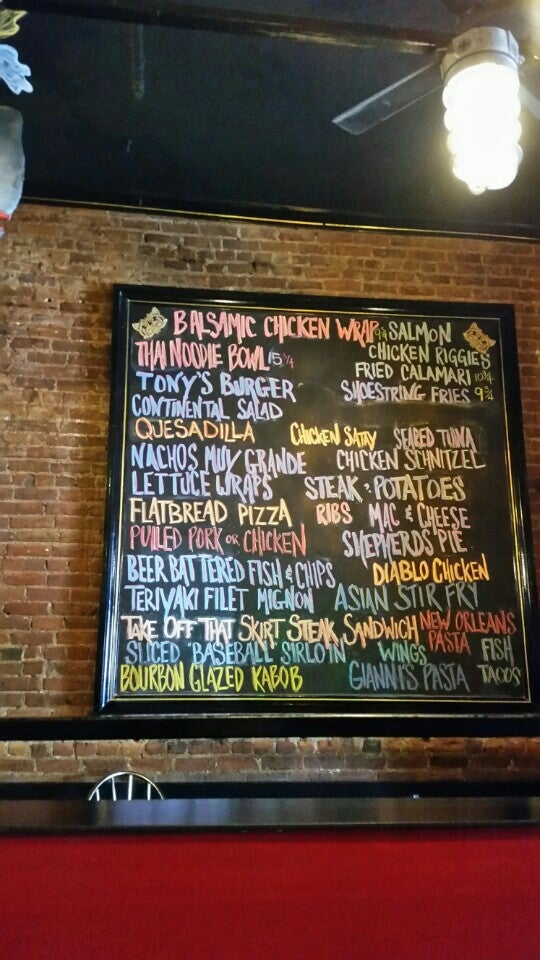 BALSAMIC CHICKEN WRAP 9¾ SALMON
THAI NOODLE BOWL 15¾ CHICKEN RIGGIES
FRIED CALAMARI 10¾
TONY'S BURGER SHOESTRING FRIES 9¾
CONTINENTAL SALAD
QUESADILLA CHICKEN SATAY SEARED TUNA
NACHOS MUY GRANDE CHICKEN SCHNITZEL
LETTUCE WRAPS STEAK & POTATOES
FLATBREAD PIZZA RIBS MAC & CHEESE
PULLED PORK OR CHICKEN SHEPHERDS PIE
BEER BATTERED FISH & CHIPS DIABLO CHICKEN
TERIYAKI FILET MIGNON ASIAN STIR FRY
TAKE OFF THAT SKIRT STEAK SANDWICH NEW ORLEANS PASTA
SLICED "BASEBALL" SIRLOIN WINGS FISH TACOS
BOURBON GLAZED KABOB GIANNI'S PASTA